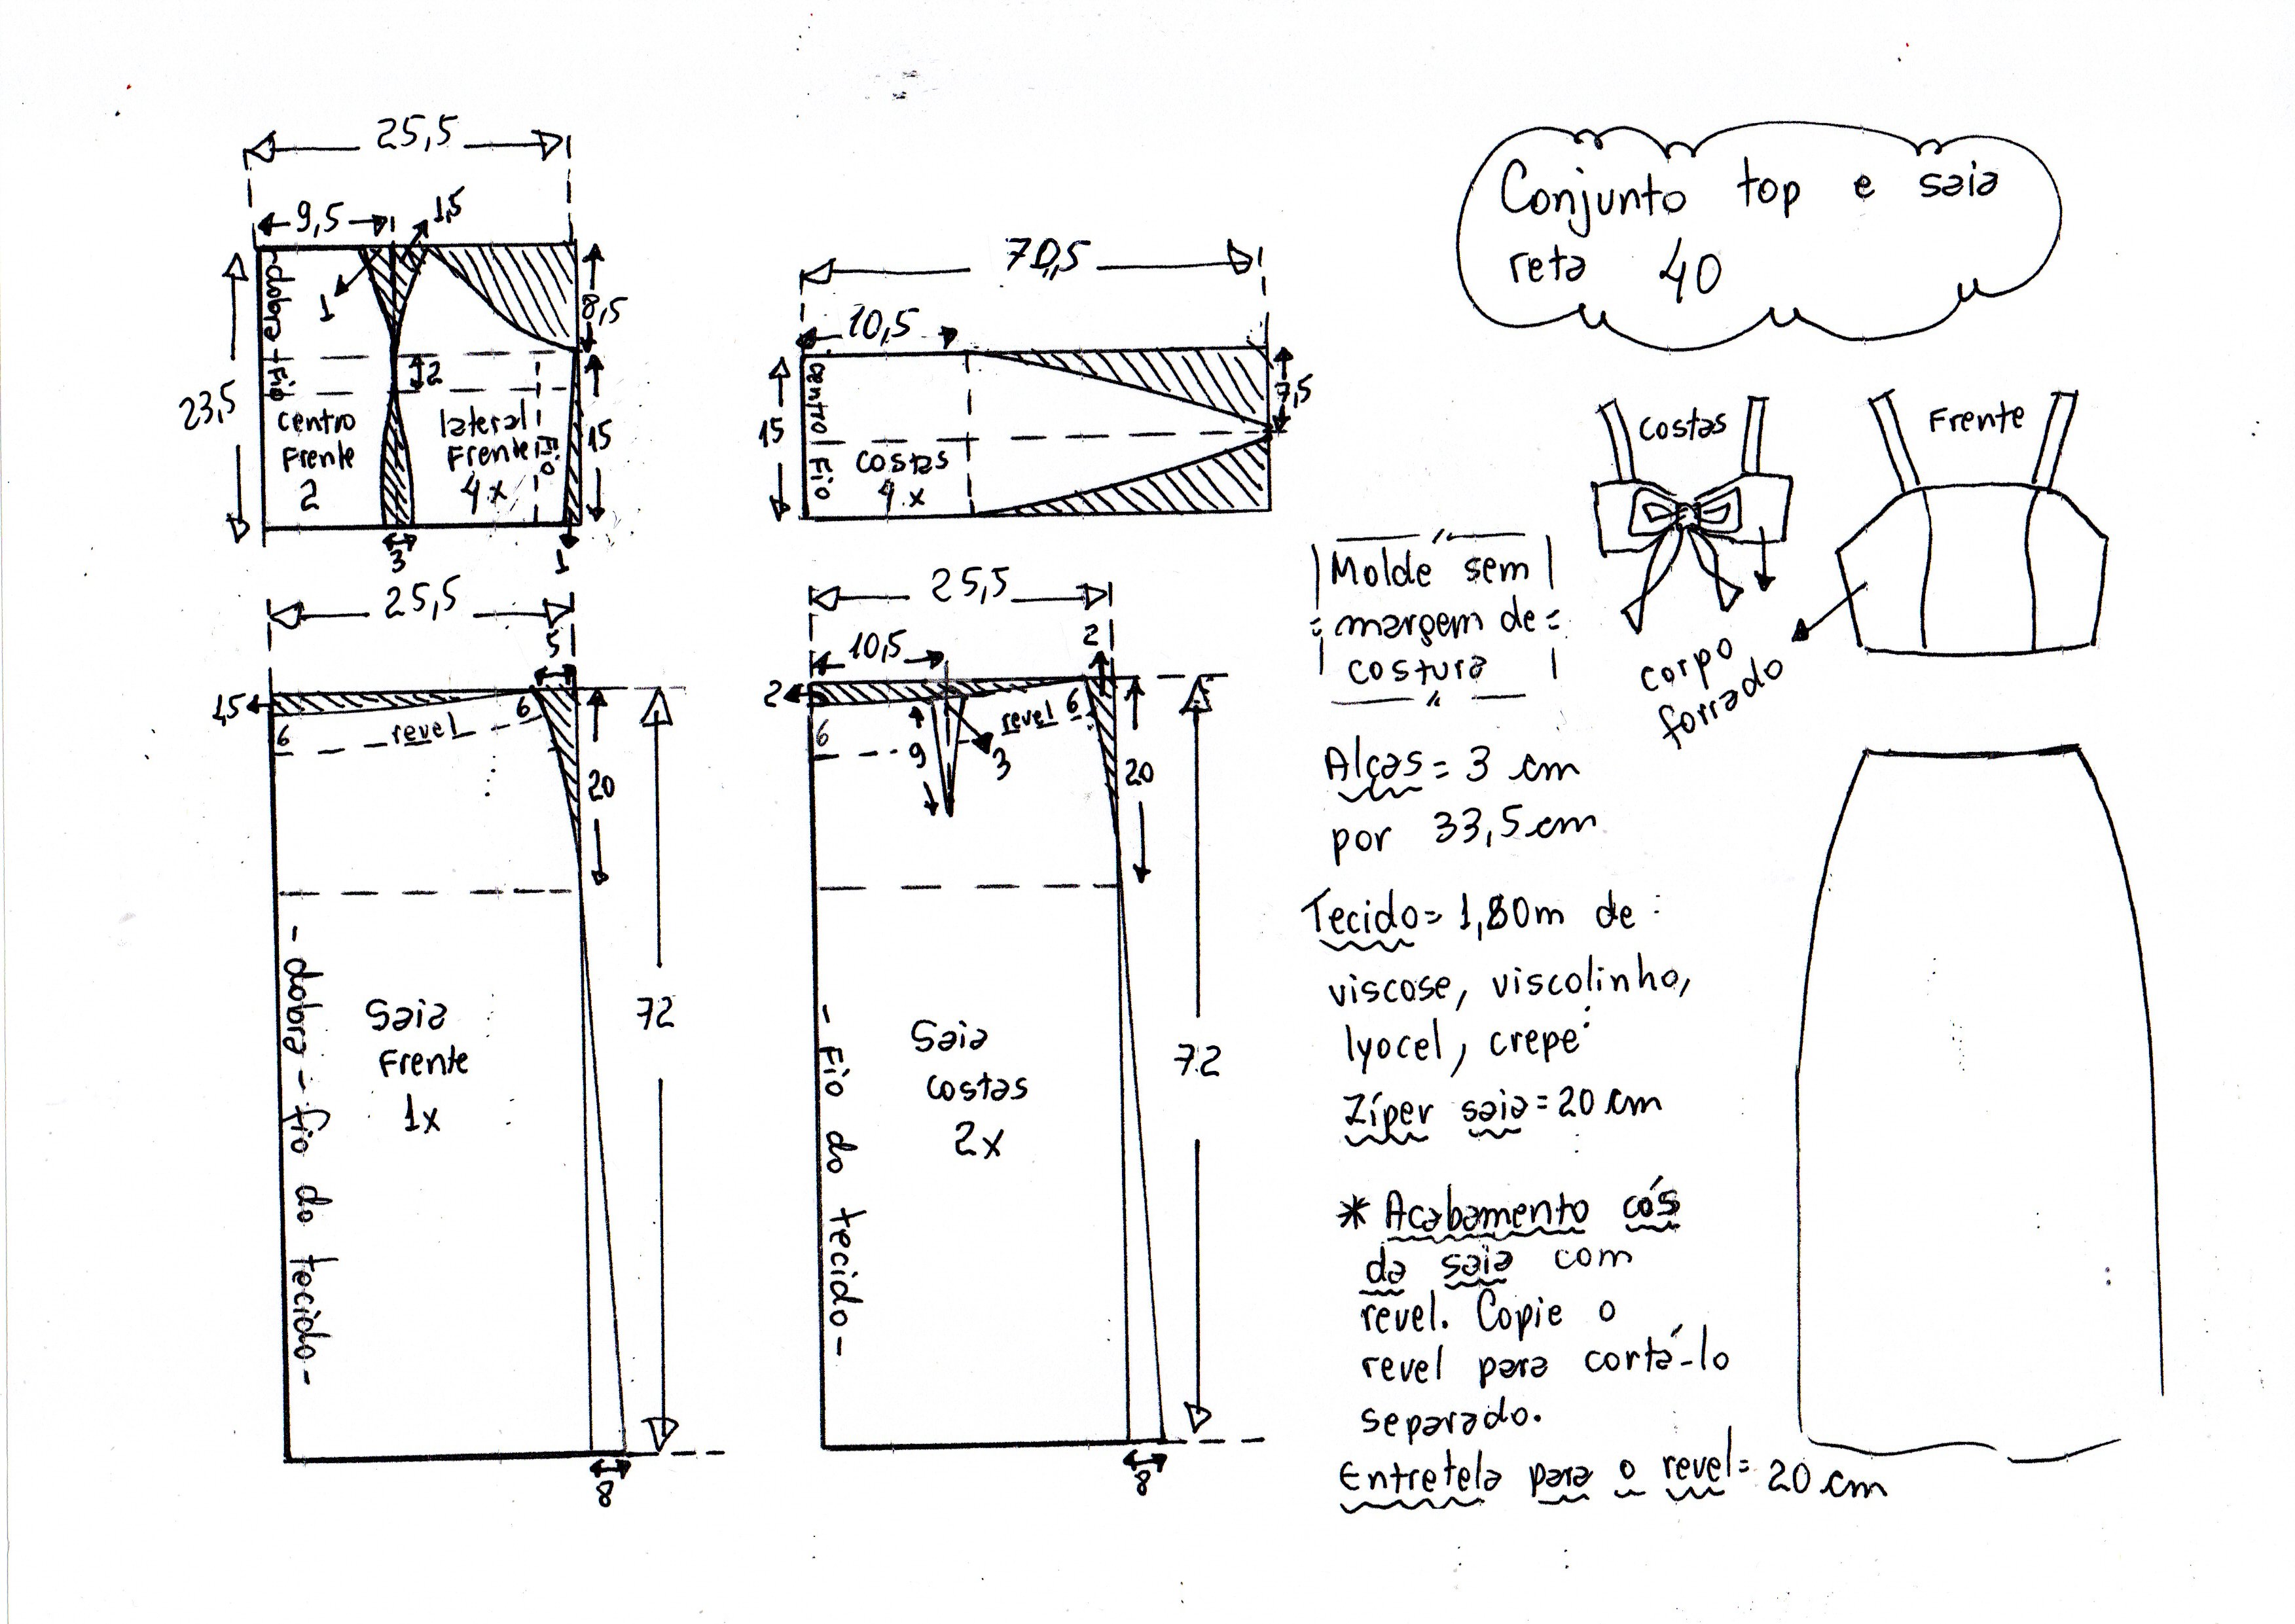 25,5
9,5
1,5
1
8,5
dobra - Fio
23,5
2
centro
Frente
2
lateral
Frente
4x
Fio
15
3
1
70,5
10,5
centro Fio
15
costas
4x
7,5
Conjunto top e saia
reta 40
costas
Frente
corpo
forrado
Molde sem
margem de
costura
25,5
5
1,5
6
revel
6
20
72
- dobra - fio do tecido -
Saia
Frente
1x
8
25,5
10,5
2
2
6
9
3
revel
6
20
72
- Fio do tecido -
Saia
costas
2x
8
Alças = 3 cm
por 33,5 cm
Tecido = 1,80m de
viscose, viscolinho,
lyocel, crepe
Zíper saia = 20 cm
* Acabamento cós
da saia com
revel. Copie o
revel para cortá-lo
separado.
Entretela para o revel = 20 cm